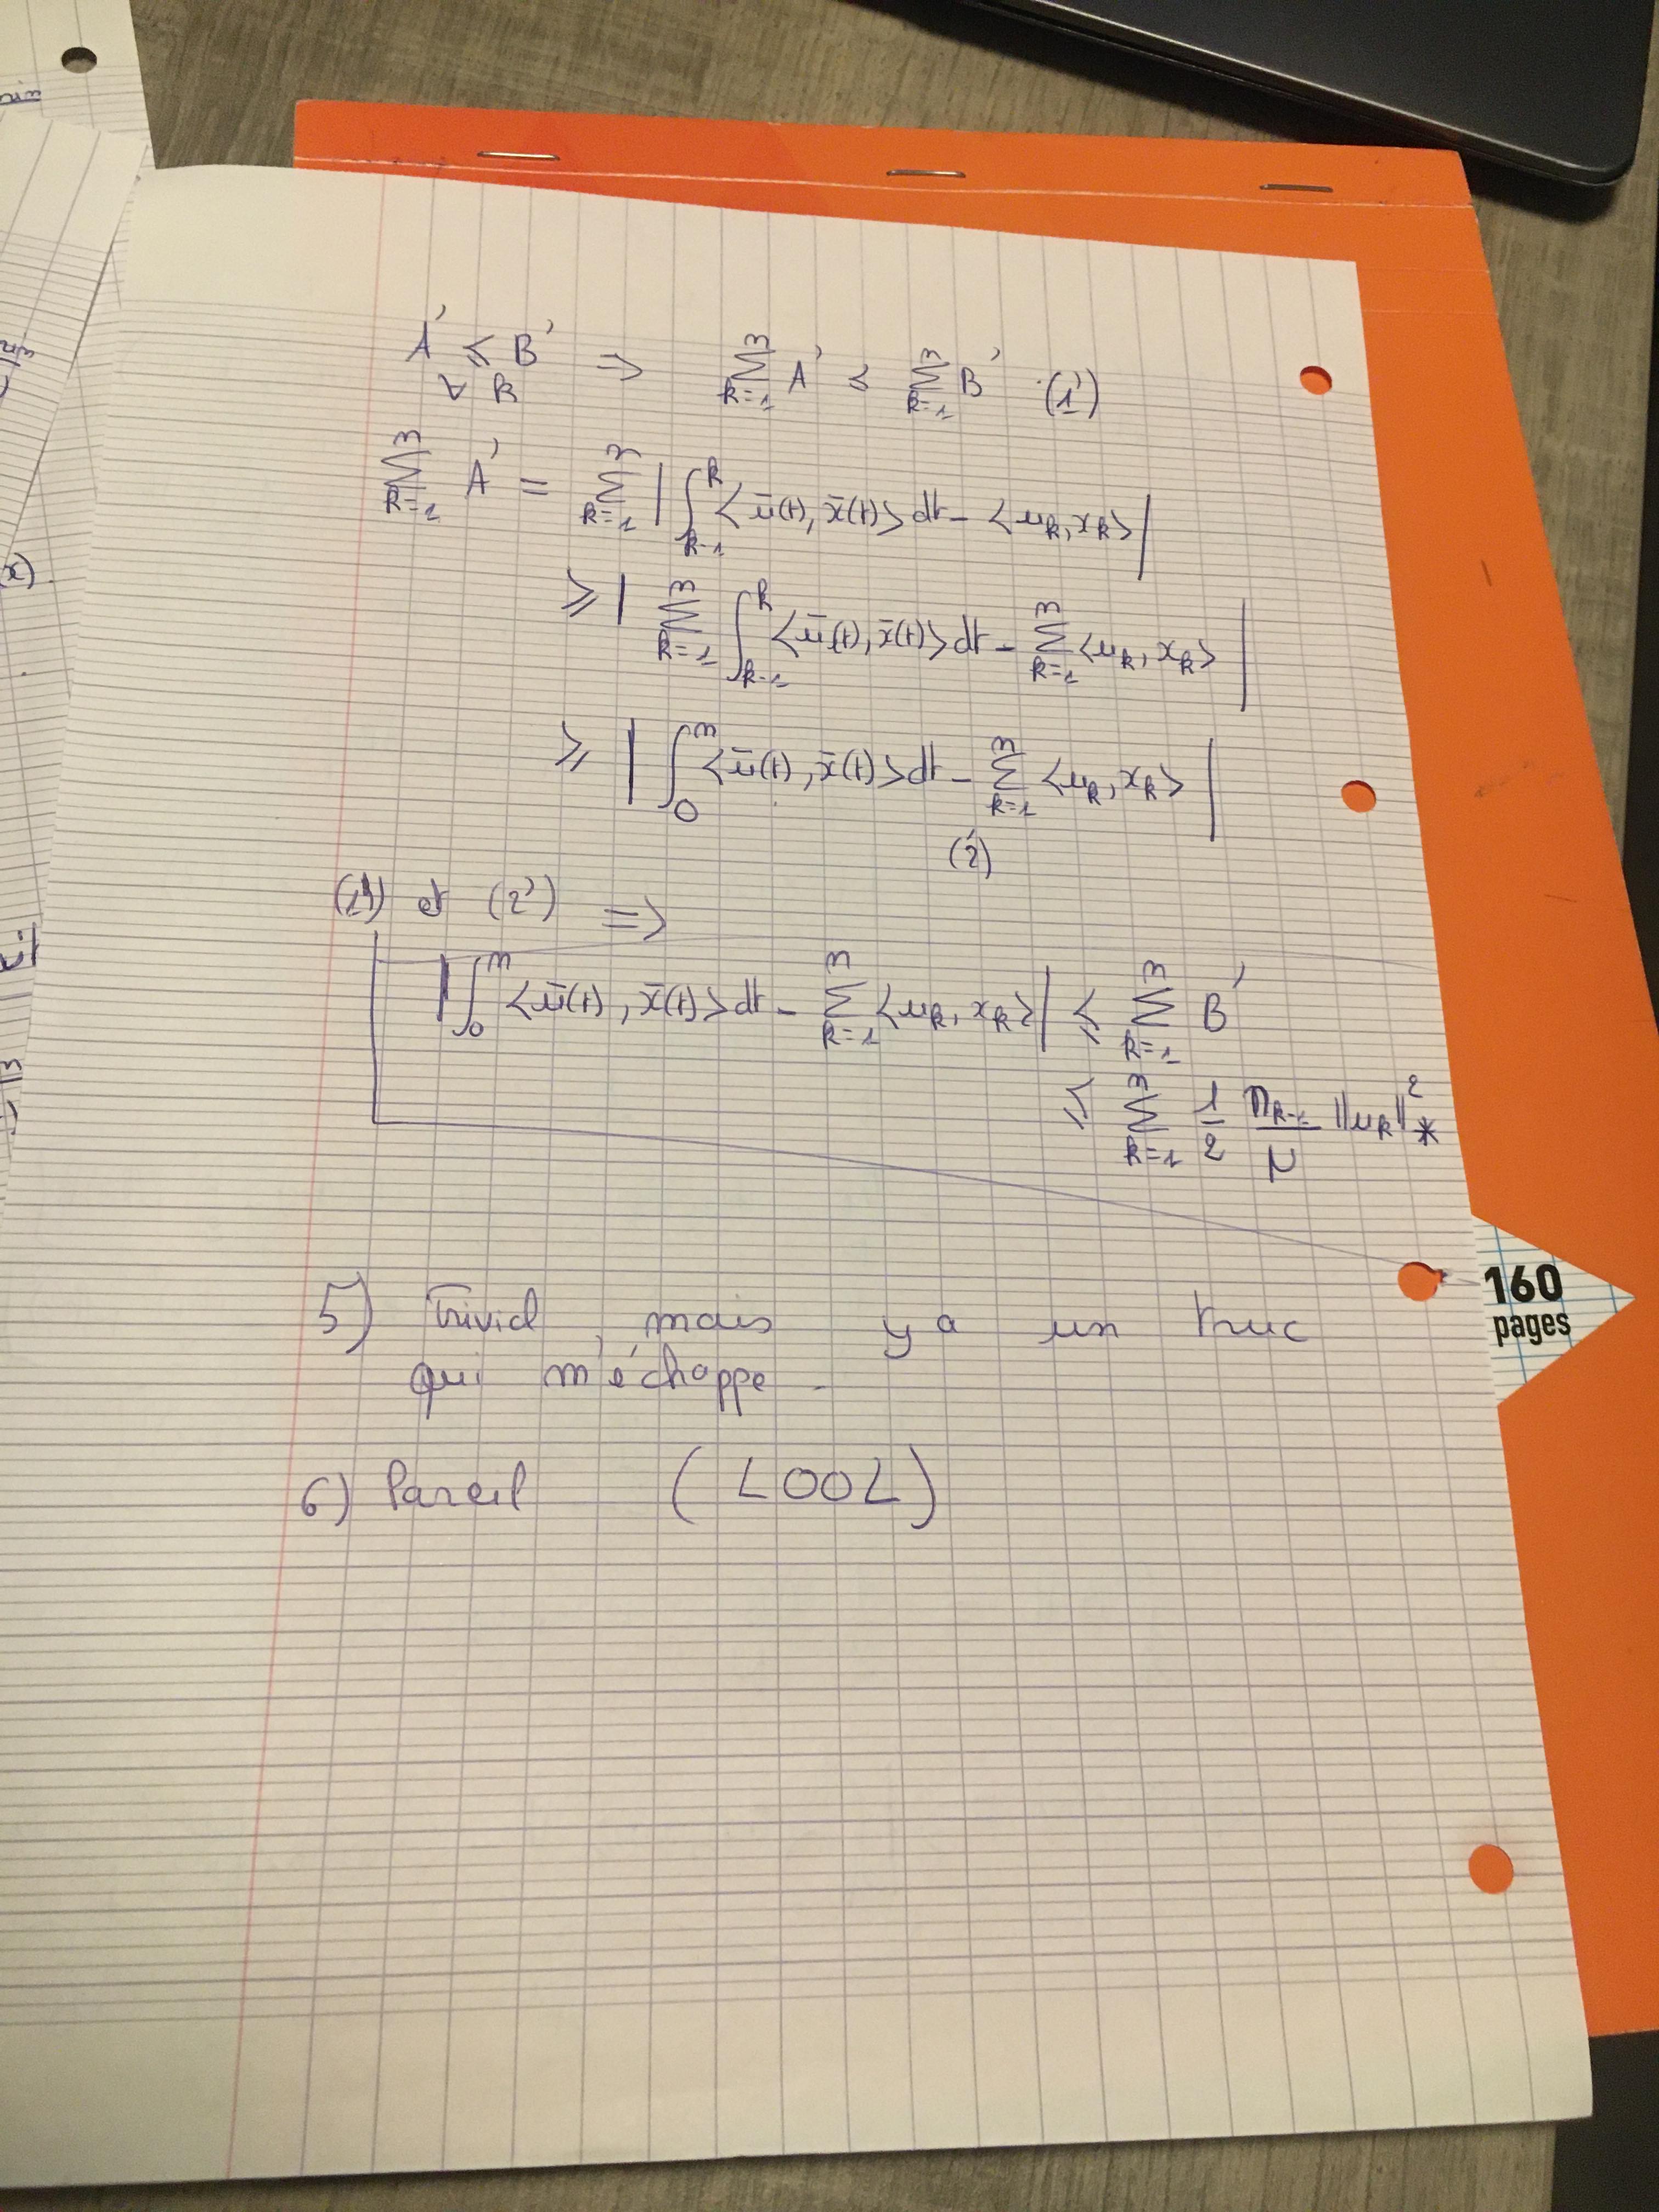 A' ≤ B' ⇒ ∑_{k=1}^{n} A' ≤ ∑_{k=1}^{n} B' (1')
∀ k
∑_{k=1}^{n} A' = ∑_{k=1}^{n} | ∫_{k-1}^{k} <ū(t), x̄(t)> dt - <u_k, x_k> |
≥ | ∑_{k=1}^{n} ∫_{k-1}^{k} <ū(t), x̄(t)> dt - ∑_{k=1}^{n} <u_k, x_k> |
≥ | ∫_0^n <ū(t), x̄(t)> dt - ∑_{k=1}^{n} <u_k, x_k> |
(2')
(1') et (2') ⇒
| ∫_0^n <ū(t), x̄(t)> dt - ∑_{k=1}^{n} <u_k, x_k> | ≤ ∑_{k=1}^{n} B'
≤ ∑_{k=1}^{n} 1/2 η_{k-1}/μ ||u_k||²_*
5) Trivial, mais y a un truc
qui m'échappe.
6) Pareil (LOOL)
160
pages